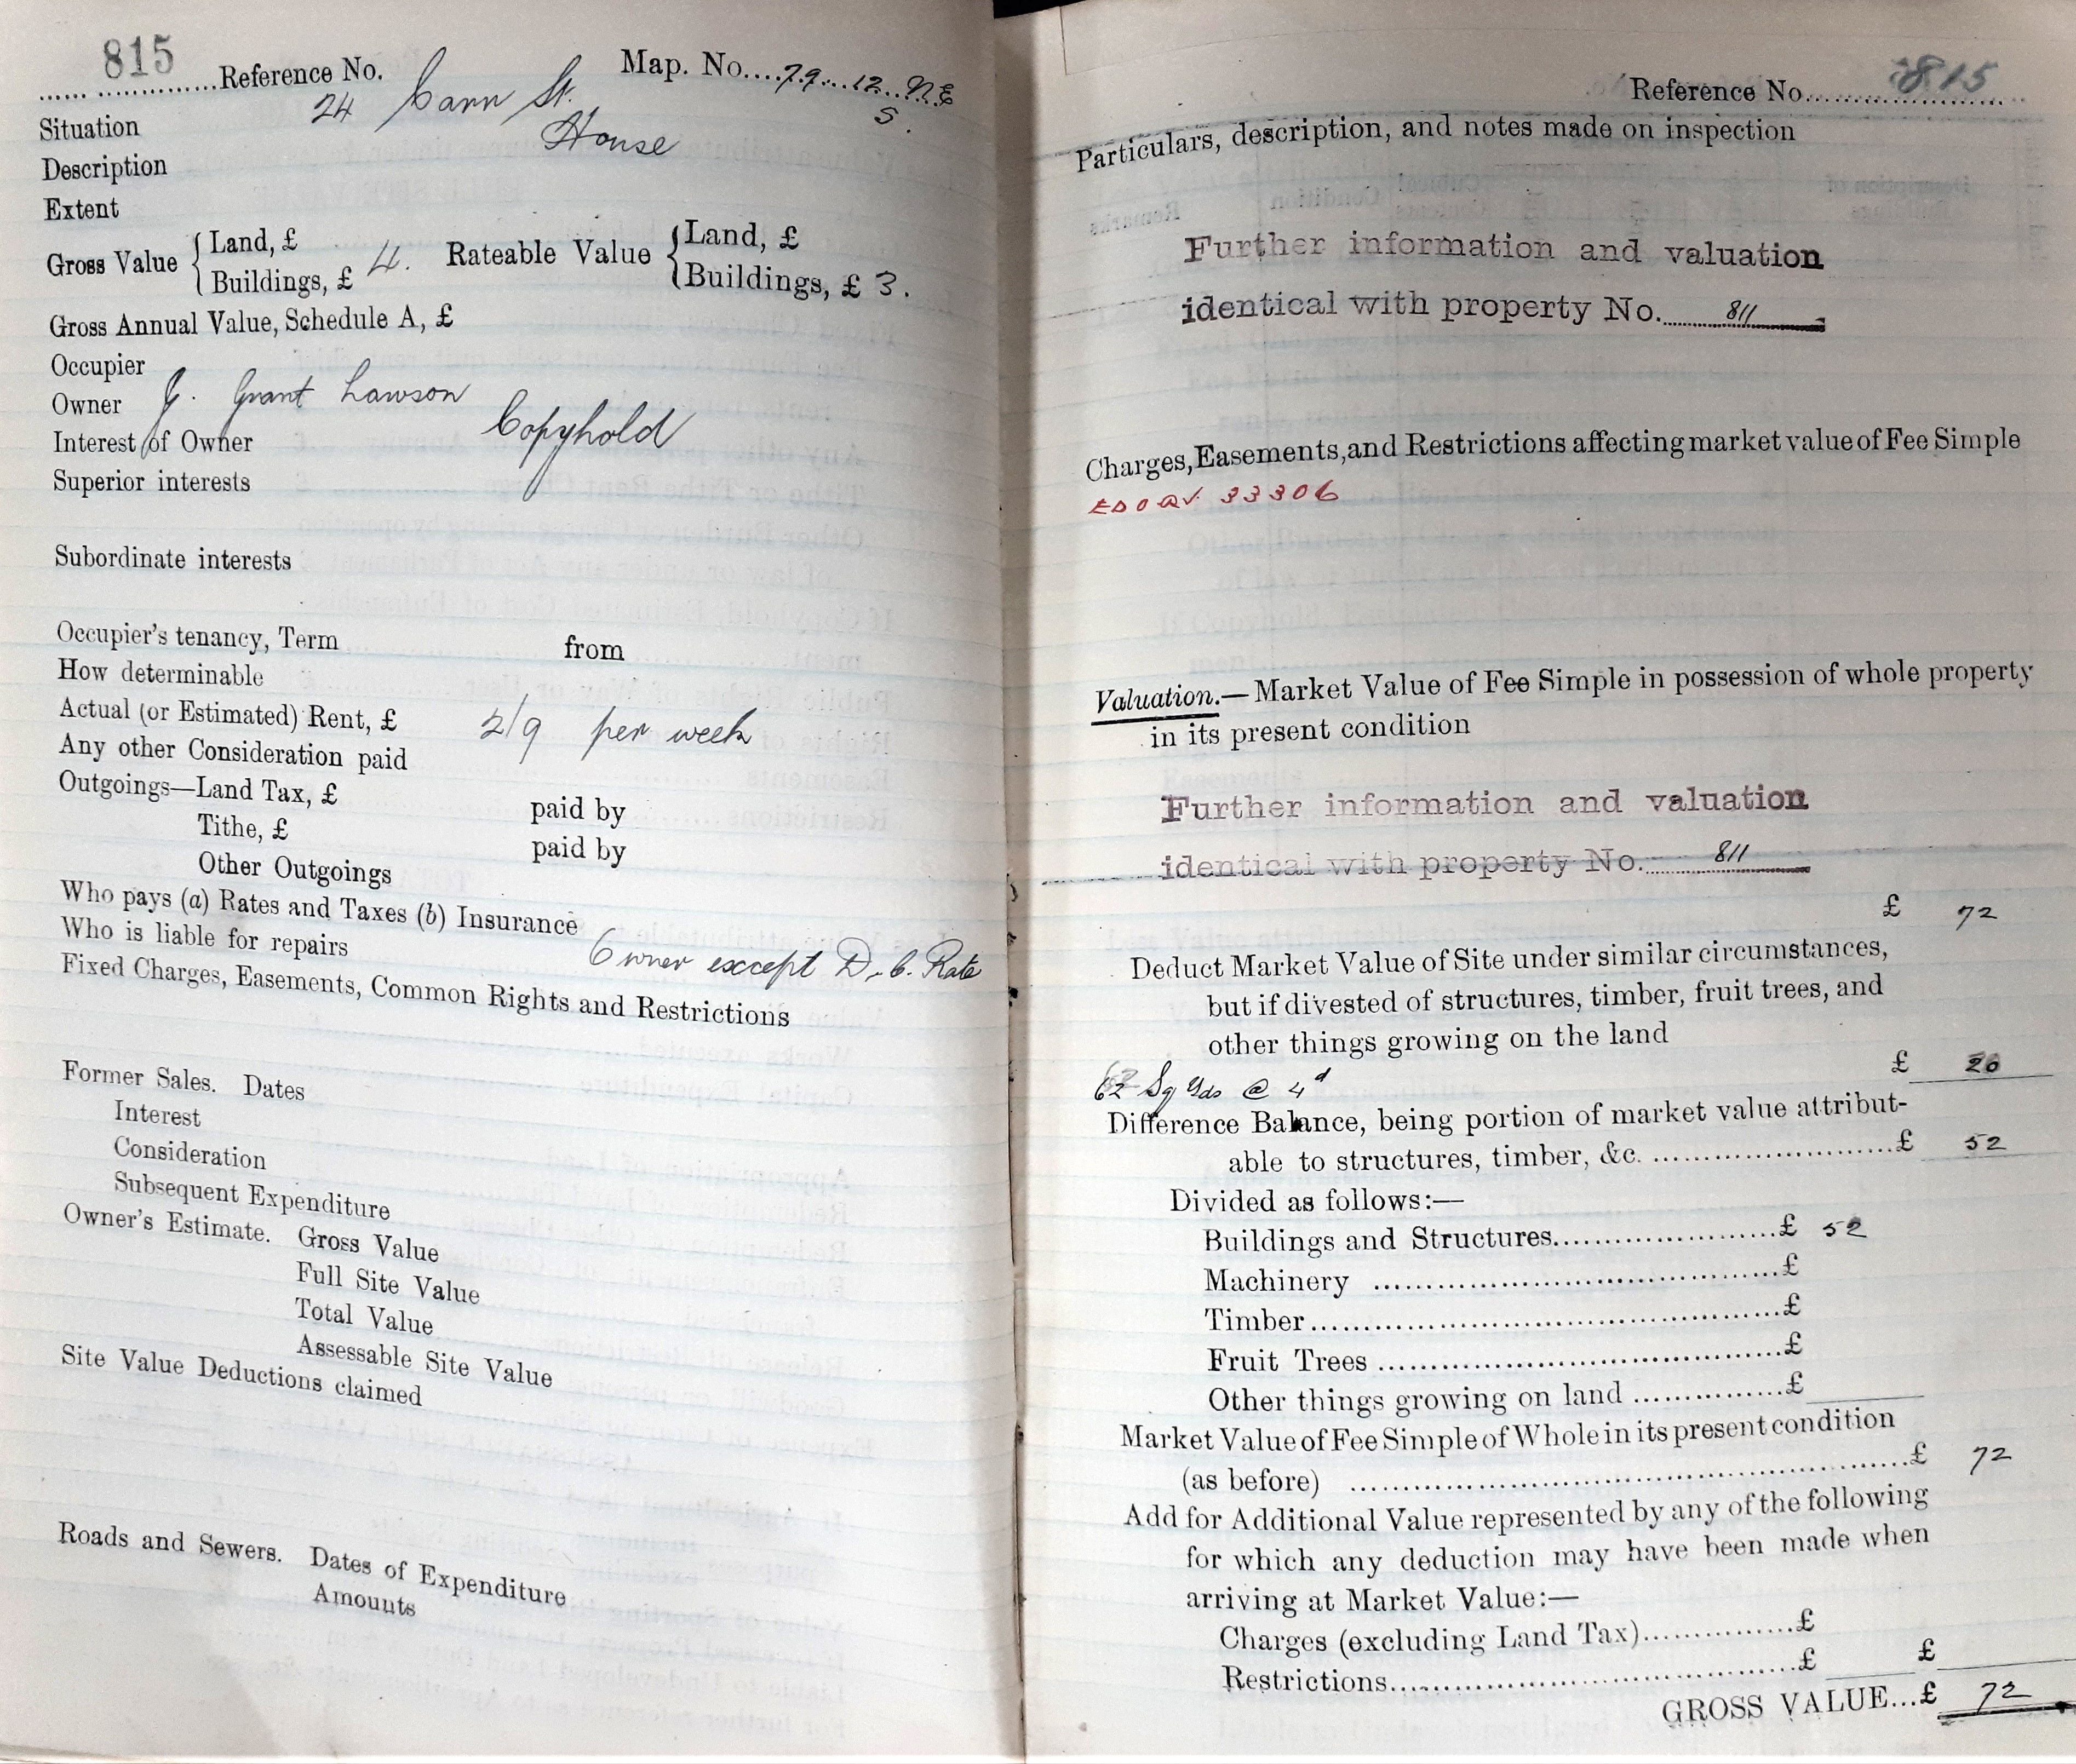 815 Reference No. Map. No. 79 12 N.E
S.
Situation 24 Carr St.
Description House
Extent
Gross Value { Land, £
Buildings, £ 4. Rateable Value { Land, £
Buildings, £ 3.
Gross Annual Value, Schedule A, £
Occupier
Owner J. Grant Lawson
Interest of Owner Copyhold
Superior interests
Subordinate interests
Occupier's tenancy, Term from
How determinable
Actual (or Estimated) Rent, £ 2/9 per week
Any other Consideration paid
Outgoings—Land Tax, £ paid by
Tithe, £ paid by
Other Outgoings
Who pays (a) Rates and Taxes (b) Insurance
Who is liable for repairs Owner except D.C. Rate
Fixed Charges, Easements, Common Rights and Restrictions
Former Sales. Dates
Interest
Consideration
Subsequent Expenditure
Owner's Estimate. Gross Value
Full Site Value
Total Value
Assessable Site Value
Site Value Deductions claimed
Roads and Sewers. Dates of Expenditure
Amounts
Reference No. 815
Particulars, description, and notes made on inspection
Further information and valuation
identical with property No. 811
Charges, Easements, and Restrictions affecting market value of Fee Simple
33306
Valuation.—Market Value of Fee Simple in possession of whole property
in its present condition
Further information and valuation
identical with property No. 811
£ 72
Deduct Market Value of Site under similar circumstances,
but if divested of structures, timber, fruit trees, and
other things growing on the land
62 Sq Yds @ 4d £ 20
Difference Balance, being portion of market value attribut-
able to structures, timber, &c. £ 52
Divided as follows:—
Buildings and Structures £ 52
Machinery £
Timber £
Fruit Trees £
Other things growing on land £
Market Value of Fee Simple of Whole in its present condition
(as before) £ 72
Add for Additional Value represented by any of the following
for which any deduction may have been made when
arriving at Market Value:—
Charges (excluding Land Tax) £
Restrictions £ £
GROSS VALUE...£ 72